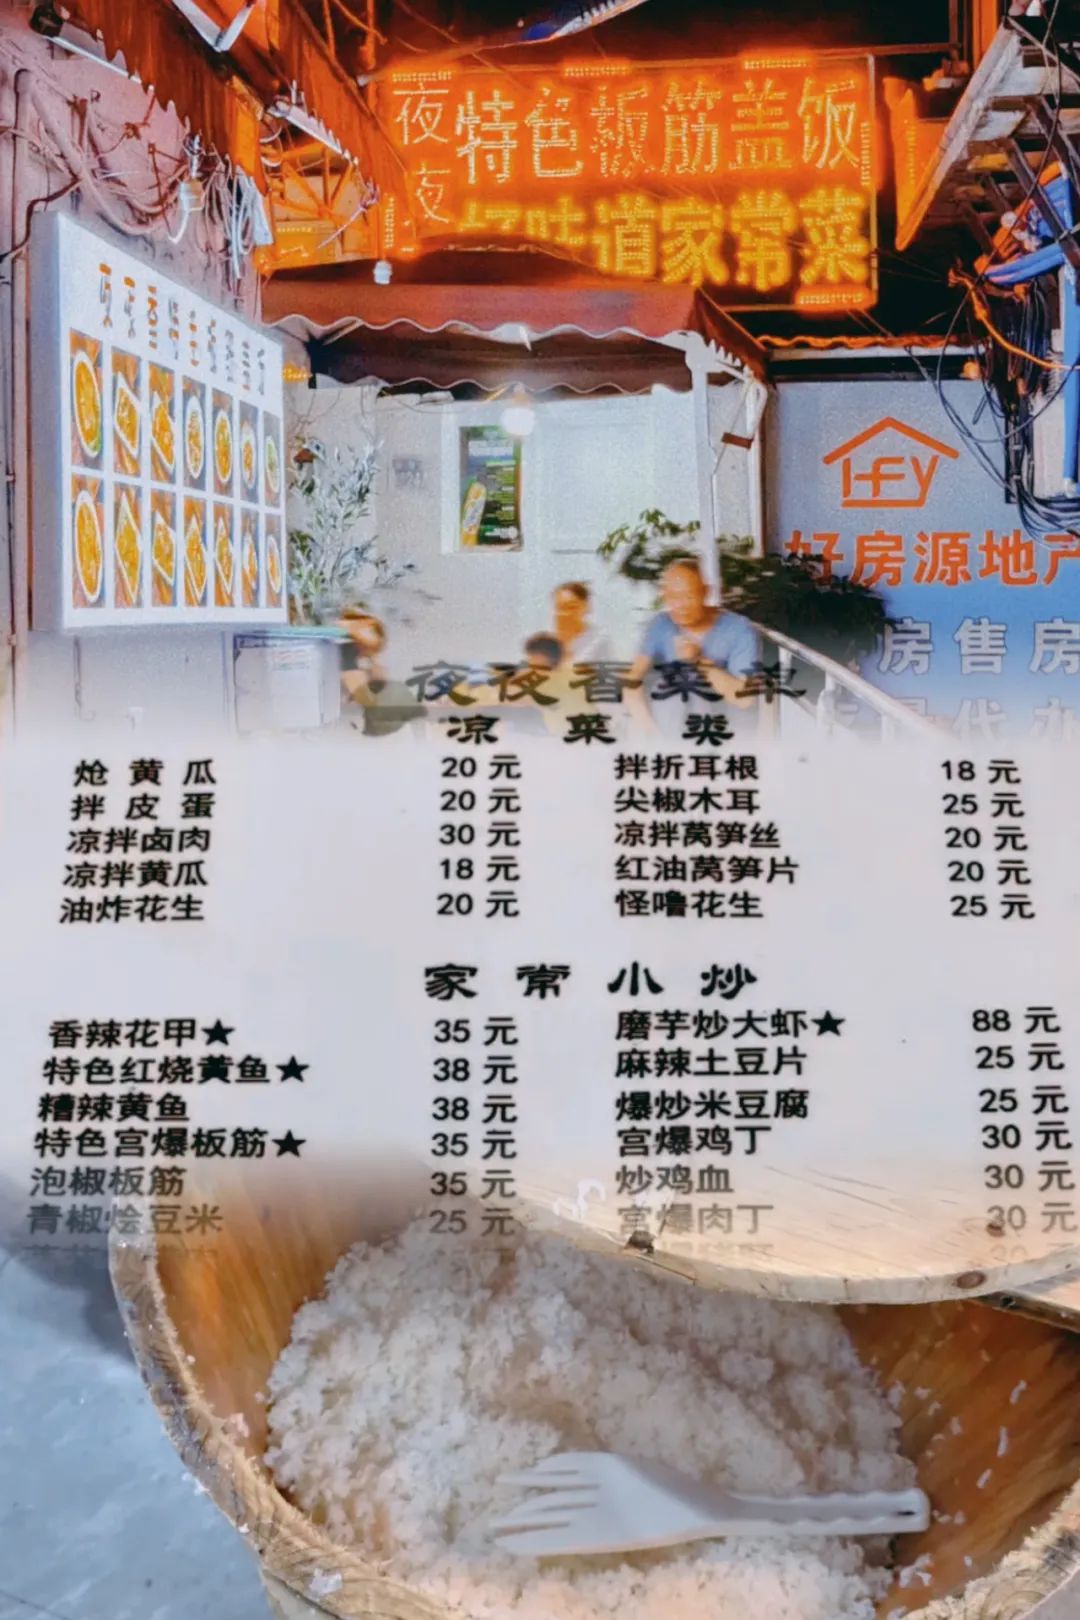 夜夜
特色板筋盖饭
好味道家常菜
lfy
好房源地产
房售房
代办
夜夜香菜单
凉菜类
炝黄瓜 20元 拌折耳根 18元
拌皮蛋 20元 尖椒木耳 25元
凉拌卤肉 30元 凉拌莴笋丝 20元
凉拌黄瓜 18元 红油莴笋片 20元
油炸花生 20元 怪噜花生 25元
家常小炒
香辣花甲★ 35元 磨芋炒大虾★ 88元
特色红烧黄鱼★ 38元 麻辣土豆片 25元
糟辣黄鱼 38元 爆炒米豆腐 25元
特色宫爆板筋★ 35元 宫爆鸡丁 30元
泡椒板筋 35元 炒鸡血 30元
青椒烩豆米 25元 宫爆肉丁 30元